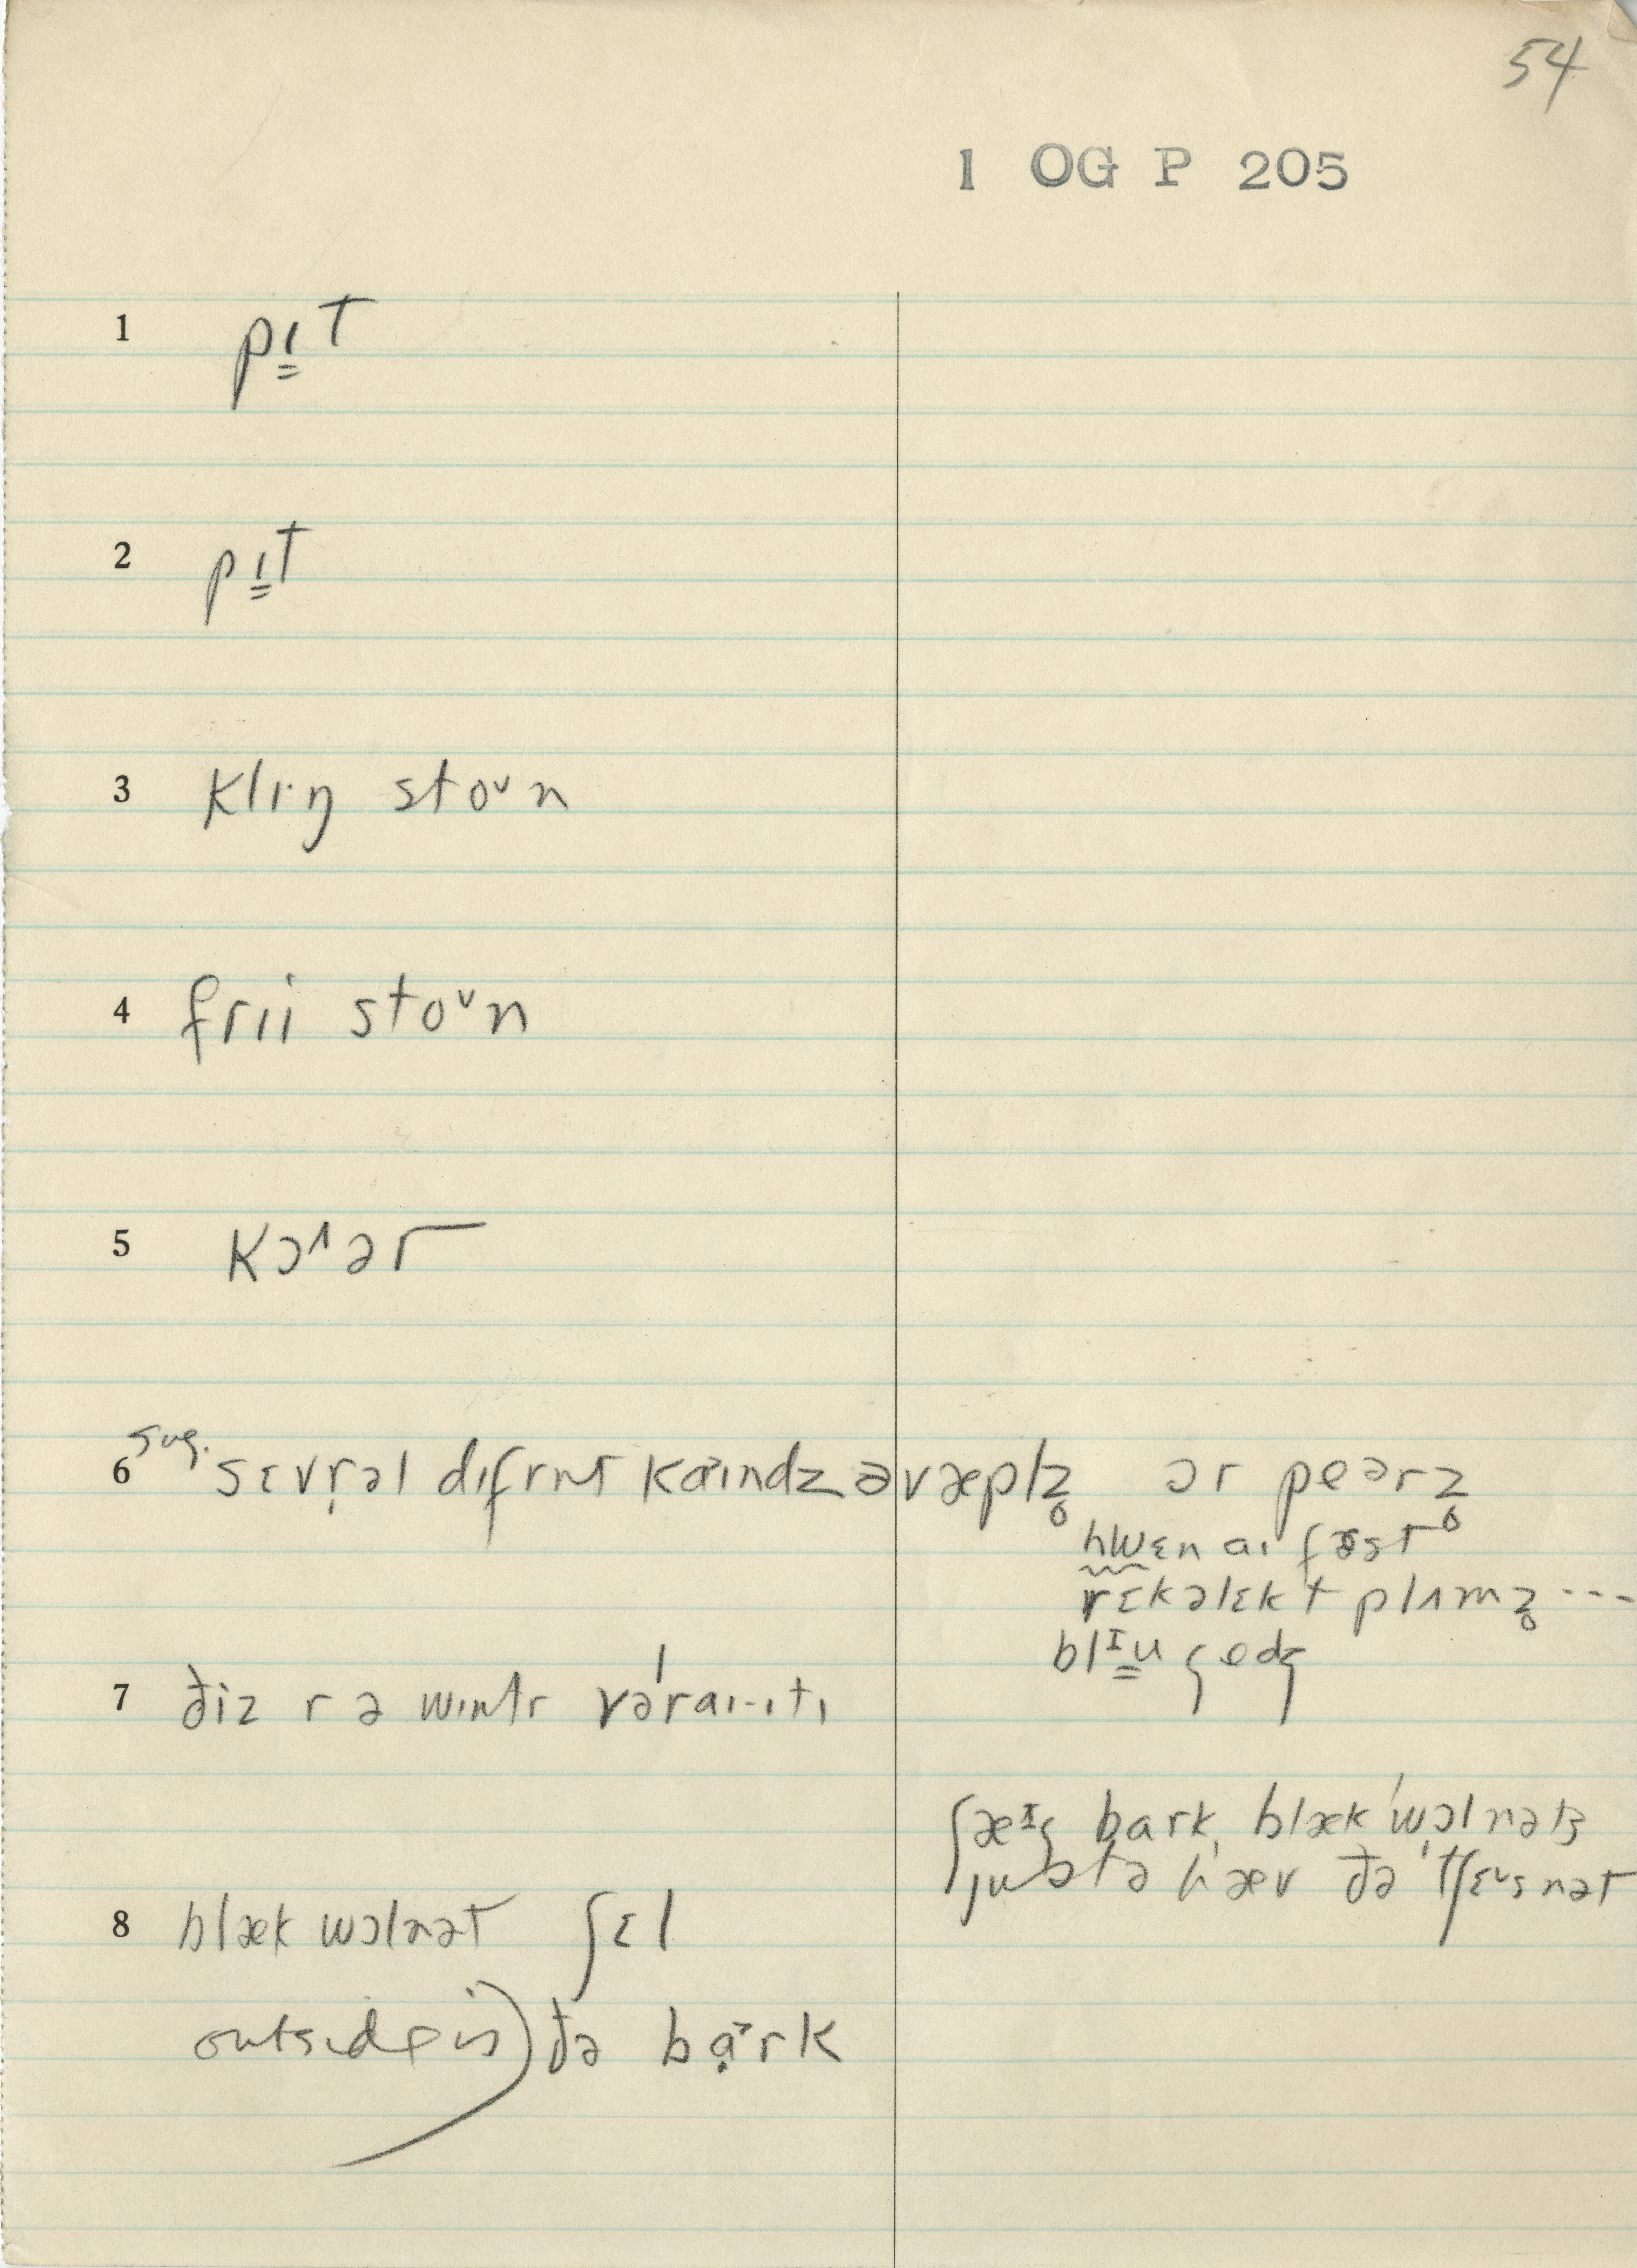 54
1 OG P 205
1 pı̳t
2 pı̳t
3 klı·ŋ stoᴠn
4 frii stoᴠn
5 kɔʌər
6 sug. sɛvṛəl dıfrnt kaındz əv æplz̥ ɔr peərz̥
hwɛn aı fɜst
rɛkəlɛkt plʌmz̥ ---
blɪ̳u ꞔedꞔ
7 ðiz r ə wıntr vəˈraı·ıtı
ʃæɪꞔ bark, blæk ˈwɔlnəts
justə hæv ðə ˈtʃɛᴠsnət
8 blæk wɔlnət ʃɛl
outside is) ðə bạrk